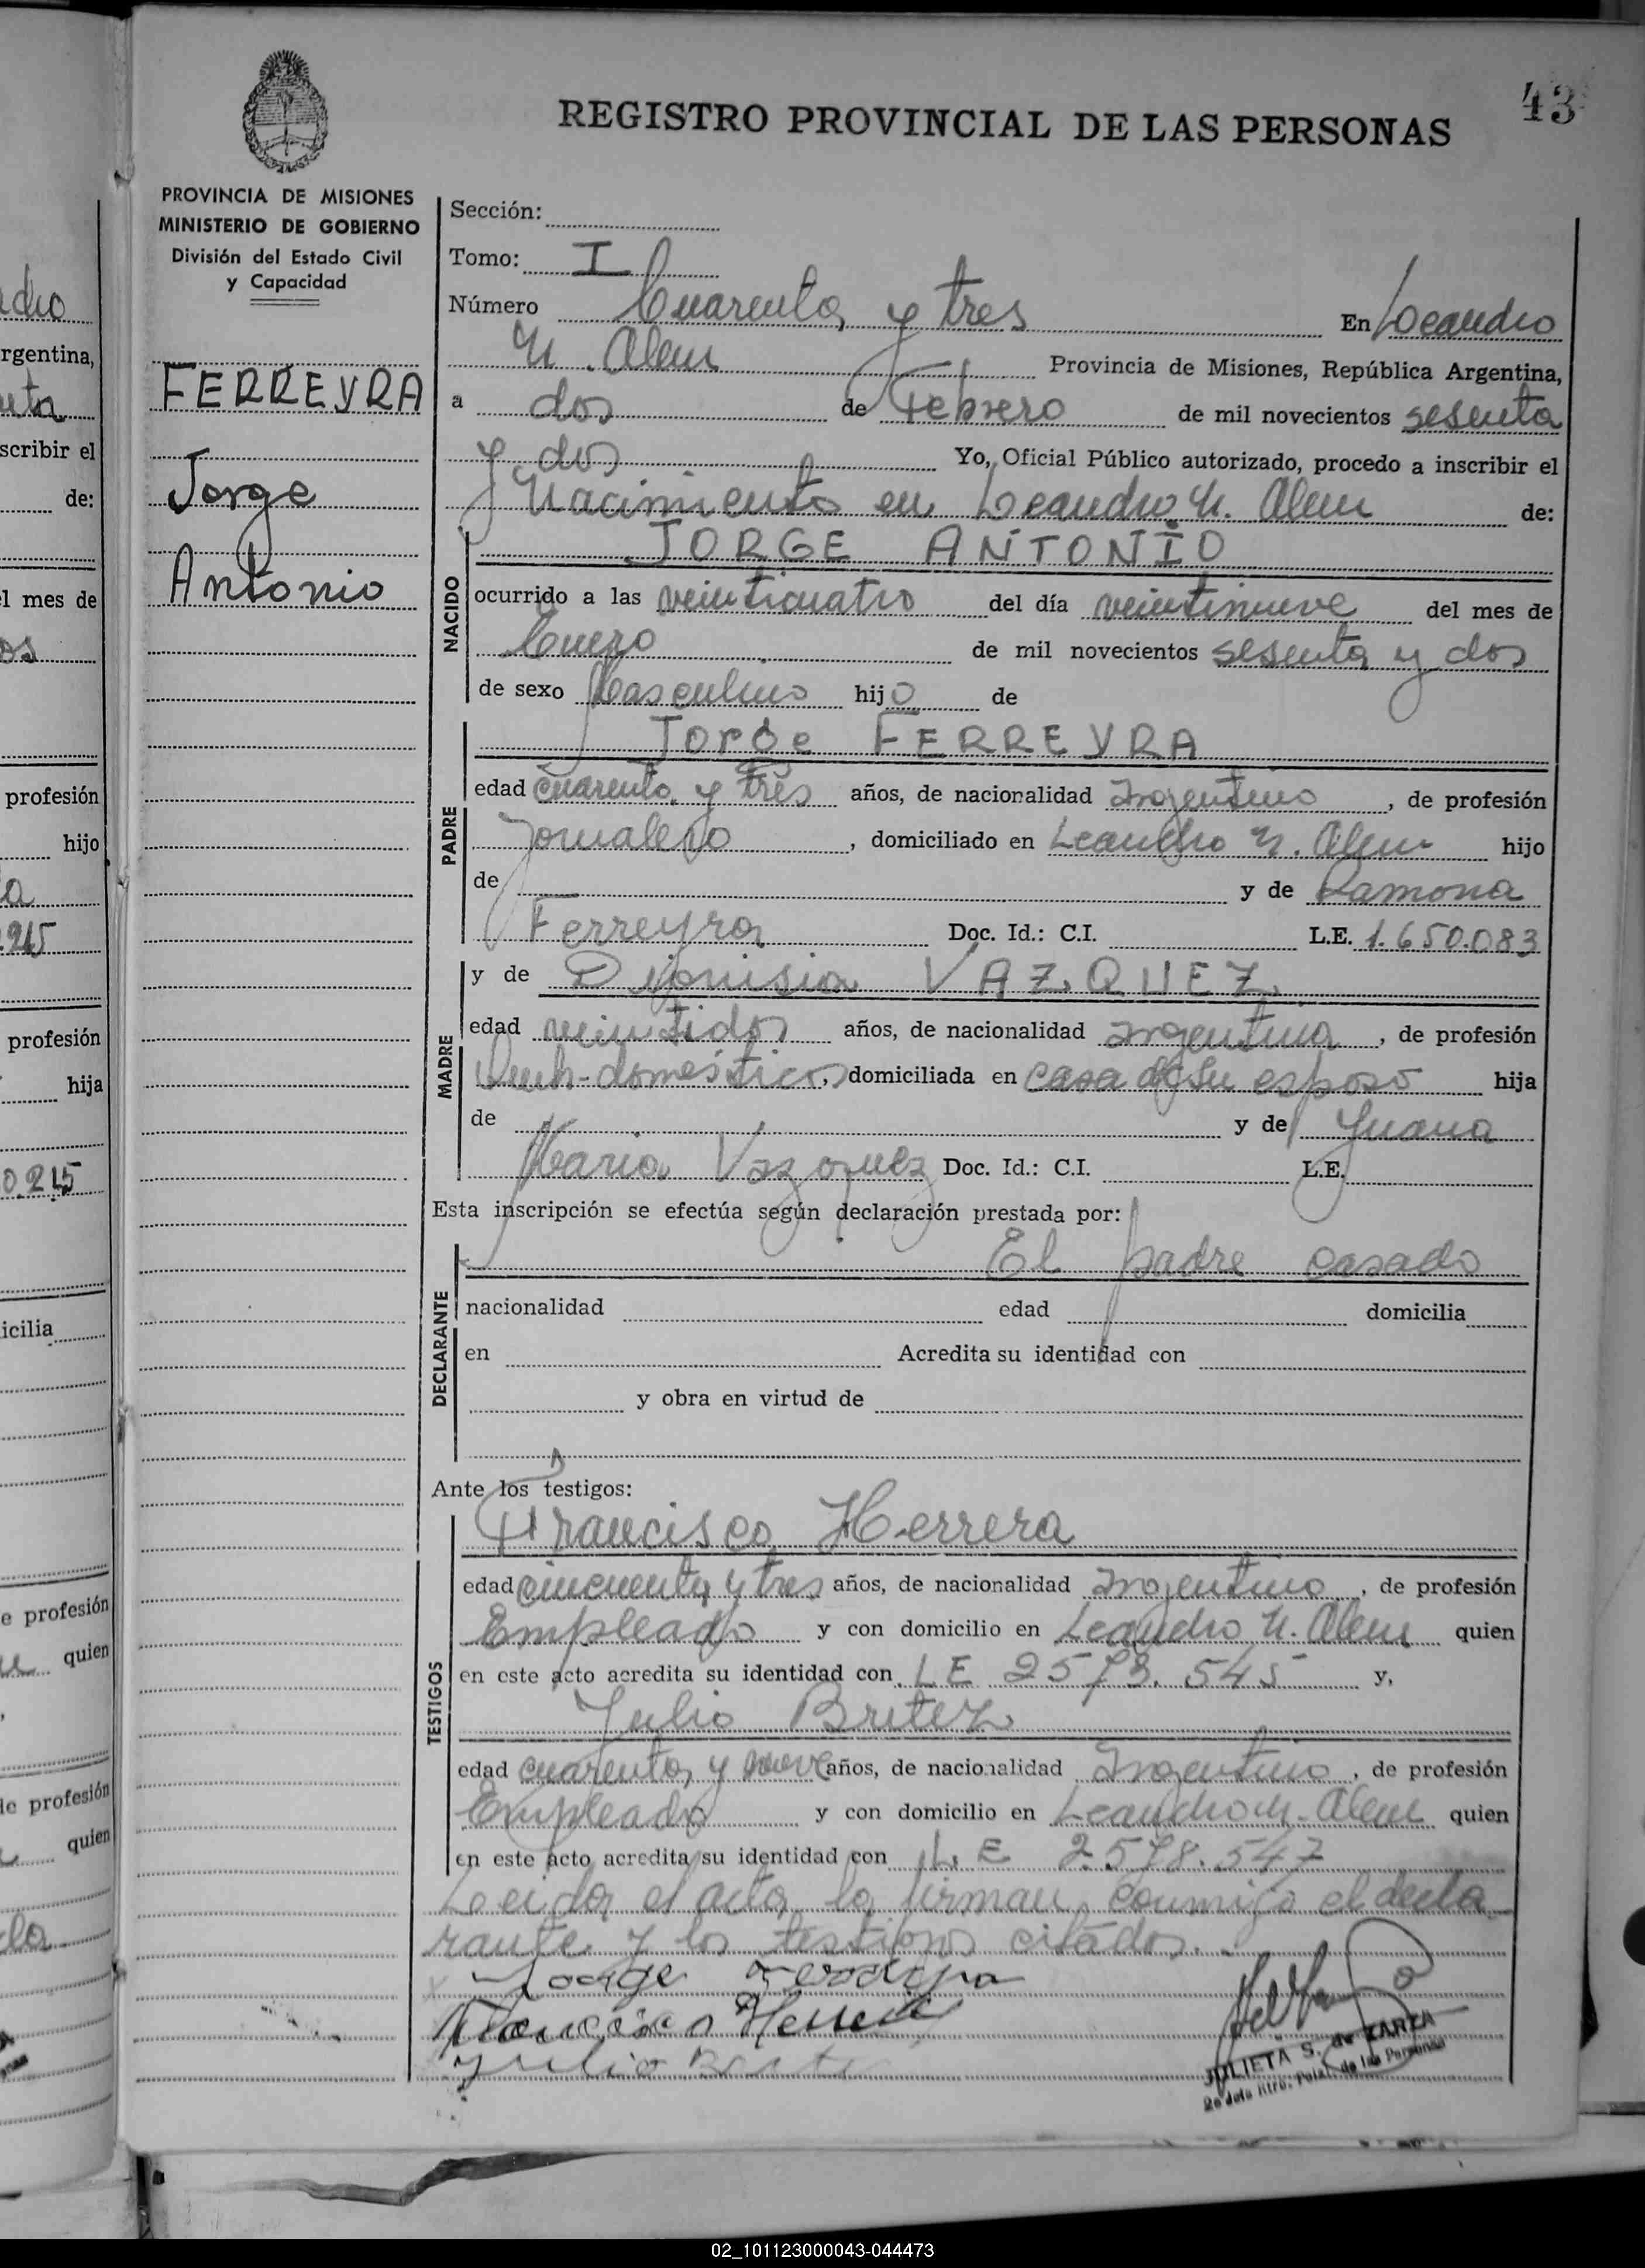 43
REGISTRO PROVINCIAL DE LAS PERSONAS
PROVINCIA DE MISIONES
MINISTERIO DE GOBIERNO
División del Estado Civil
y Capacidad
FERREYRA
Jorge
Antonio
Sección:
Tomo: I
Número Cuarenta y tres En Leandro
N. Alem Provincia de Misiones, República Argentina,
a dos de Febrero de mil novecientos sesenta
y dos Yo, Oficial Público autorizado, procedo a inscribir el
Nacimiento en Leandro N. Alem de:
NACIDO
JORGE ANTONIO
ocurrido a las veinticuatro del día veintinueve del mes de
Enero de mil novecientos sesenta y dos
de sexo Masculino hijo de
PADRE
Jorge FERREYRA
edad cuarenta y tres años, de nacionalidad Argentino, de profesión
Jornalero, domiciliado en Leandro N. Alem hijo
de y de Ramona
Ferreyra Doc. Id.: C.I. L.E. 1.650.083
MADRE
y de Dionisia VAZQUEZ
edad veintidos años, de nacionalidad argentina, de profesión
domésticos, domiciliada en casa de su esposo hija
de y de Juana
Maria Vazquez Doc. Id.: C.I. L.E.
Esta inscripción se efectúa según declaración prestada por:
DECLARANTE
El padre casado
nacionalidad edad domicilia
en Acredita su identidad con
y obra en virtud de
Ante los testigos:
TESTIGOS
Francisco Herrera
edad cincuenta y tres años, de nacionalidad Argentino, de profesión
Empleado y con domicilio en Leandro N. Alem quien
en este acto acredita su identidad con L E 2573.545 y,
Julio Britez
edad cuarenta y nueve años, de nacionalidad Argentino, de profesión
Empleado y con domicilio en Leandro N. Alem quien
en este acto acredita su identidad con L. E 2.578.547
Leida el acta, la firman conmigo el decla
rante y los testigos citados.
Jorge Ferreyra
Francisco Herrera
Julio
JULIETA S. de ZARZA
de las Personas
02_101123000043-044473